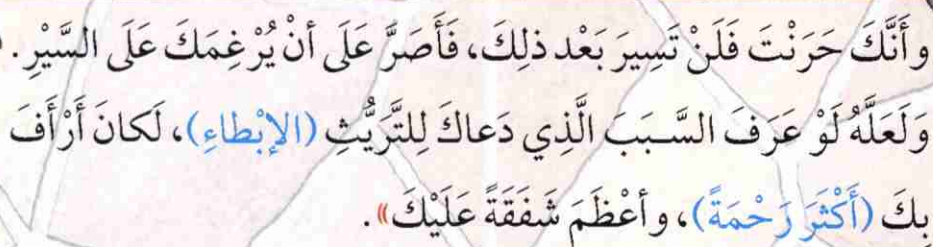 وأَنَّكَ حَرَنْتَ فَلَنْ تَسِيرَ بَعْد ذلِكَ، فَأَصَرَّ عَلَى أنْ يُرْغِمَكَ عَلَى السَّيْرِ.
وَلَعَلَّهُ لَوْ عَرَفَ السَّبَبَ الَّذِي دَعاكَ لِلتَّرَيُّثِ (الإبْطاءِ)، لَكانَ أَرْأَفَ
بِكَ (أَكْثَرَ رَحْمَةً)، وأعْظَمَ شَفَقَةً عَلَيْكَ».